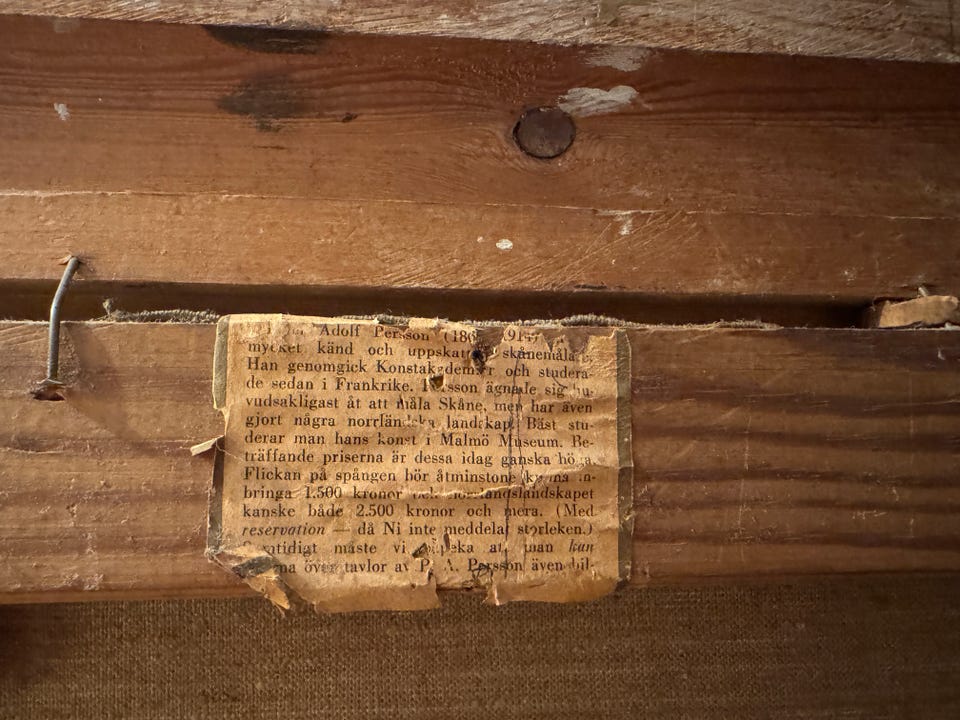 Adolf Persson (186 1914)
mycket känd och uppskat skånemåla
Han genomgick och studera-
de sedan i Frankrike. ägnade sig hu-
vudsakligast åt att måla Skåne, men har även
gjort några norrländska landskap. Bäst stu-
derar man hans konst i Malmö Museum. Be-
träffande priserna är dessa idag ganska höga.
Flickan på spången bör åtminstone kunna in-
bringa 1.500 kronor och norrlandslandskapet
kanske både 2.500 kronor och mera. (Med
reservation — då Ni inte meddelat storleken.)
Samtidigt måste vi påpeka att man kan
över tavlor av P. A. Persson även bil-